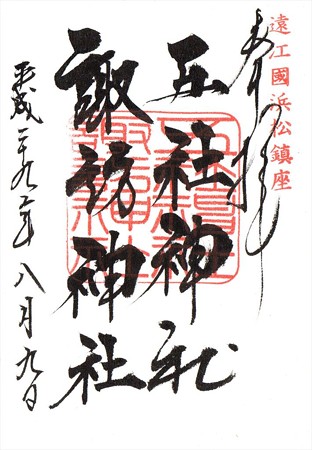 遠江國浜松鎮座
奉拝
五社神社
諏訪神社
平成二十九年八月九日